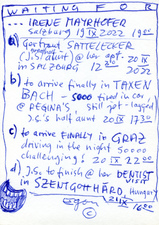 WAITING FOR
... IRENE MAYRHOFER
Salzburg 19 IX 2022 1900
a) Gertraut SATTLECKER
(J.S.'s aunt) @ her apt. 20 IX
in SALZBURG 1220 2022
b) to arrive finally in TAXEN
BACH - 5000 tired in car
@ REGINA'S still jet-lagged
J.S.'s half aunt 20 IX 1730
c) to arrive FINALLY in GRAZ
driving in the night 5000
challenging! 20 IX 2200
d) J.S. to finish @ her DENTIST
VISIT
in SZENTGOTTHÁRD, Hungary
21 IX
1620
©